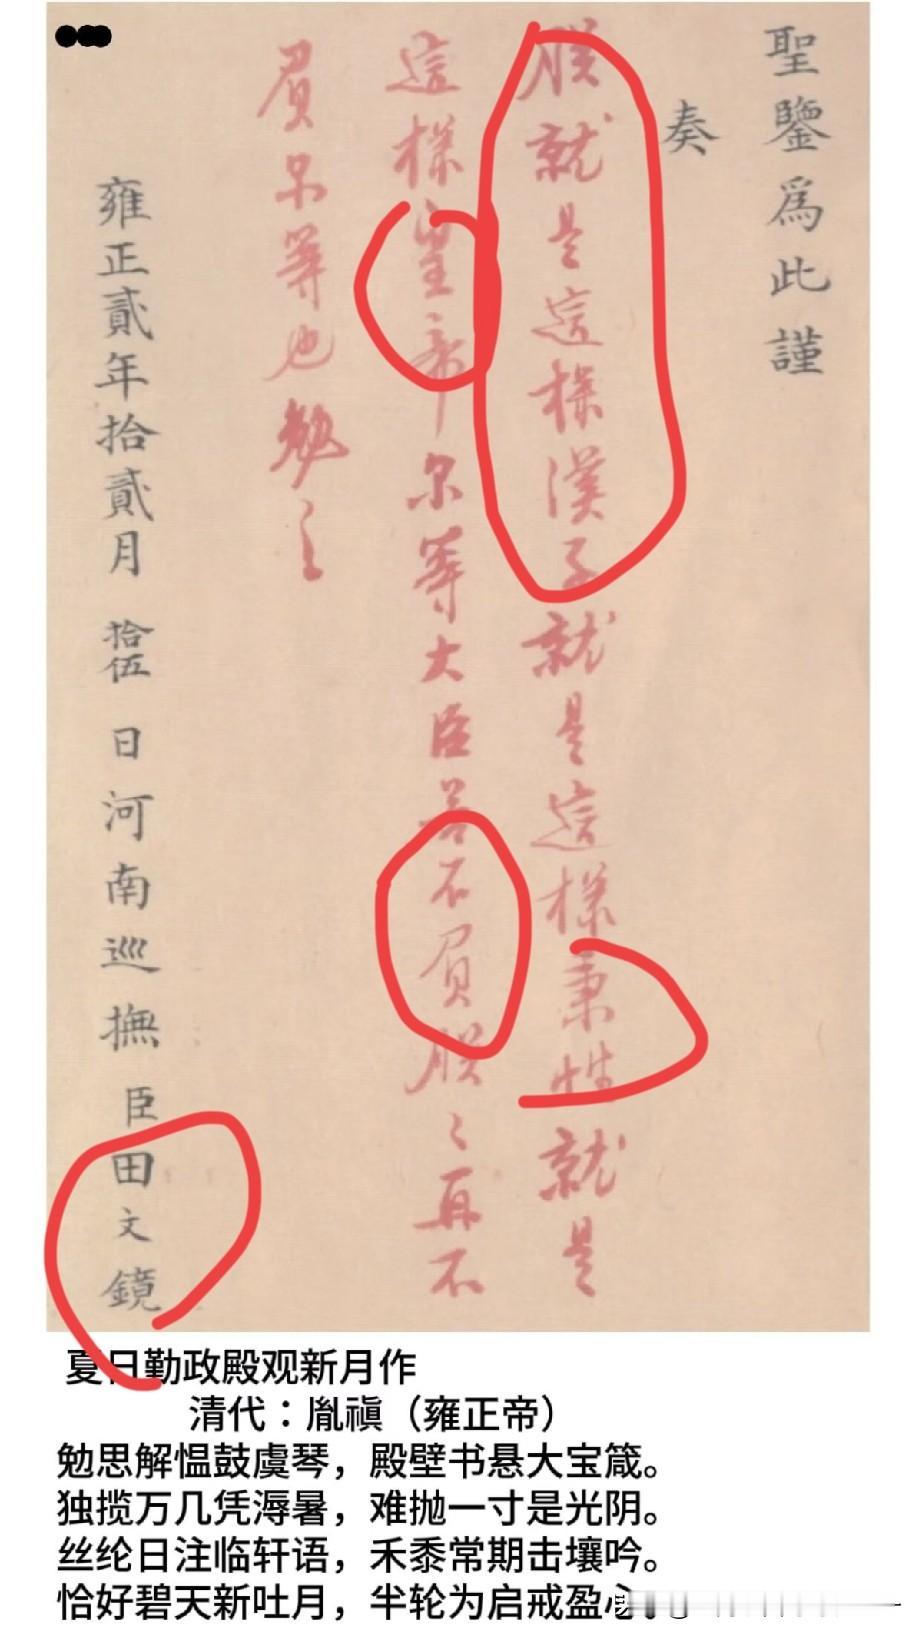 聖鑒爲此謹
奏
朕就是這樣漢子就是這樣秉性就是
這樣皇帝尔等大臣若不負朕〻再不
負尔等也勉〻
雍正貳年拾貳月拾伍日河南巡撫臣田文鏡
夏日勤政殿观新月作
清代：胤禛（雍正帝）
勉思解愠鼓虞琴，殿壁书悬大宝箴。
独揽万几凭溽暑，难抛一寸是光阴。
丝纶日注临轩语，禾黍常期击壤吟。
恰好碧天新吐月，半轮为启戒盈心。